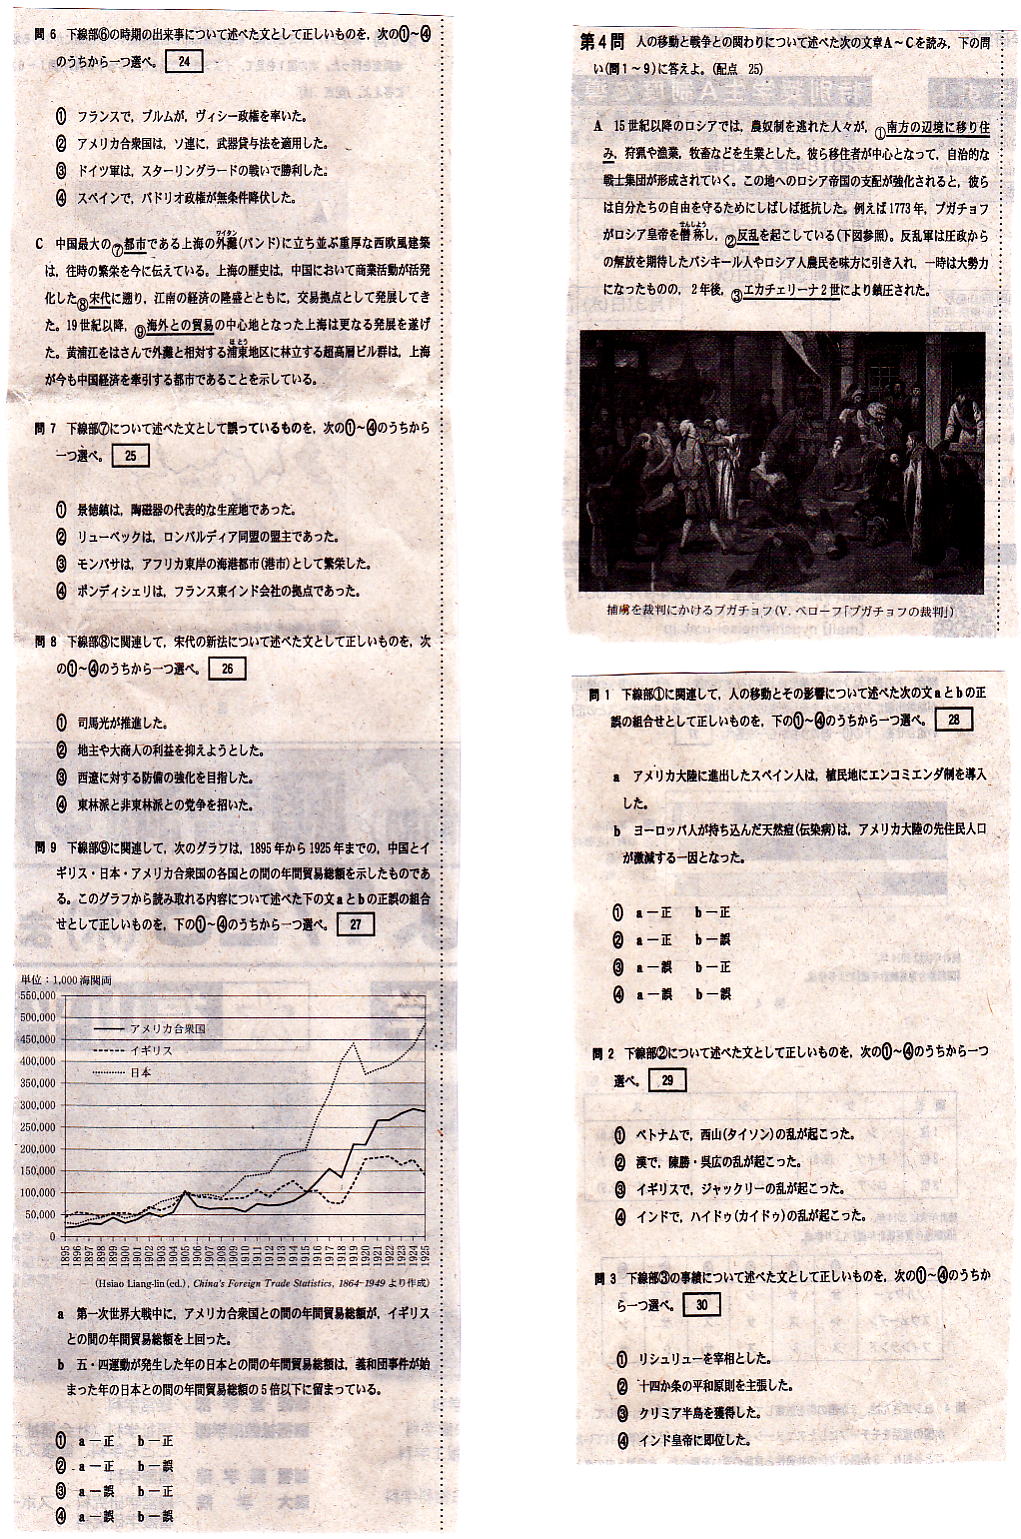 問6 下線部⑥の時期の出来事について述べた文として正しいものを,次の①~④
のうちから一つ選べ。 24
① フランスで,ブルムが,ヴィシー政権を率いた。
② アメリカ合衆国は,ソ連に,武器貸与法を適用した。
③ ドイツ軍は,スターリングラードの戦いで勝利した。
④ スペインで,バドリオ政権が無条件降伏した。
C 中国最大の⑦都市である上海の外灘(バンド)に立ち並ぶ重厚な西欧風建築
ワイタン
は,往時の繁栄を今に伝えている。上海の歴史は,中国において商業活動が活発
化した⑧宋代に遡り,江南の経済の隆盛とともに,交易拠点として発展してき
た。19世紀以降,⑨海外との貿易の中心地となった上海は更なる発展を遂げ
た。黄浦江をはさんで外灘と相対する浦東地区に林立する超高層ビル群は,上海
ほとう
が今も中国経済を牽引する都市であることを示している。
問7 下線部⑦について述べた文として誤っているものを,次の①~④のうちから
一つ選べ。 25
① 景徳鎮は,陶磁器の代表的な生産地であった。
② リューベックは,ロンバルディア同盟の盟主であった。
③ モンバサは,アフリカ東岸の海港都市(港市)として繁栄した。
④ ポンディシェリは,フランス東インド会社の拠点であった。
問8 下線部⑧に関連して,宋代の新法について述べた文として正しいものを,次
の①~④のうちから一つ選べ。 26
① 司馬光が推進した。
② 地主や大商人の利益を抑えようとした。
③ 西遼に対する防備の強化を目指した。
④ 東林派と非東林派との党争を招いた。
問9 下線部⑨に関連して,次のグラフは,1895年から1925年までの,中国とイ
ギリス・日本・アメリカ合衆国の各国との間の年間貿易総額を示したものであ
る。このグラフから読み取れる内容について述べた下の文aとbの正誤の組合
せとして正しいものを,下の①~④のうちから一つ選べ。 27
単位:1,000海関両
550,000
500,000
450,000
400,000
350,000
300,000
250,000
200,000
150,000
100,000
50,000
0
アメリカ合衆国
イギリス
日本
1895 1896 1897 1898 1899 1900 1901 1902 1903 1904 1905 1906 1907 1908 1909 1910 1911 1912 1913 1914 1915 1916 1917 1918 1919 1920 1921 1922 1923 1924 1925
(Hsiao Liang-lin (ed.), China's Foreign Trade Statistics, 1864-1949 より作成)
a 第一次世界大戦中に,アメリカ合衆国との間の年間貿易総額が,イギリス
との間の年間貿易総額を上回った。
b 五・四運動が発生した年の日本との間の年間貿易総額は,義和団事件が始
まった年の日本との間の年間貿易総額の5倍以下に留まっている。
① a-正 b-正
② a-正 b-誤
③ a-誤 b-正
④ a-誤 b-誤
第4問 人の移動と戦争との関わりについて述べた次の文章A~Cを読み,下の問
い(問1~9)に答えよ。(配点 25)
A 15世紀以降のロシアでは,農奴制を逃れた人々が,①南方の辺境に移り住
み,狩猟や漁業,牧畜などを生業とした。彼ら移住者が中心となって,自治的な
戦士集団が形成されていく。この地へのロシア帝国の支配が強化されると,彼ら
は自分たちの自由を守るためにしばしば抵抗した。例えば1773年,プガチョフ
がロシア皇帝を僭称し,②反乱を起こしている(下図参照)。反乱軍は圧政から
せんしょう
の解放を期待したバシキール人やロシア人農民を味方に引き入れ,一時は大勢力
になったものの,2年後,③エカチェリーナ2世により鎮圧された。
捕虜を裁判にかけるプガチョフ(V. ペローフ「プガチョフの裁判」)
問1 下線部①に関連して,人の移動とその影響について述べた次の文aとbの正
誤の組合せとして正しいものを,下の①~④のうちから一つ選べ。 28
a アメリカ大陸に進出したスペイン人は,植民地にエンコミエンダ制を導入
した。
b ヨーロッパ人が持ち込んだ天然痘(伝染病)は,アメリカ大陸の先住民人口
が激減する一因となった。
① a-正 b-正
② a-正 b-誤
③ a-誤 b-正
④ a-誤 b-誤
問2 下線部②について述べた文として正しいものを,次の①~④のうちから一つ
選べ。 29
① ベトナムで,西山(タイソン)の乱が起こった。
② 漢で,陳勝・呉広の乱が起こった。
③ イギリスで,ジャックリーの乱が起こった。
④ インドで,ハイドゥ(カイドゥ)の乱が起こった。
問3 下線部③の事績について述べた文として正しいものを,次の①~④のうちか
ら一つ選べ。 30
① リシュリューを宰相とした。
② 十四か条の平和原則を主張した。
③ クリミア半島を獲得した。
④ インド皇帝に即位した。